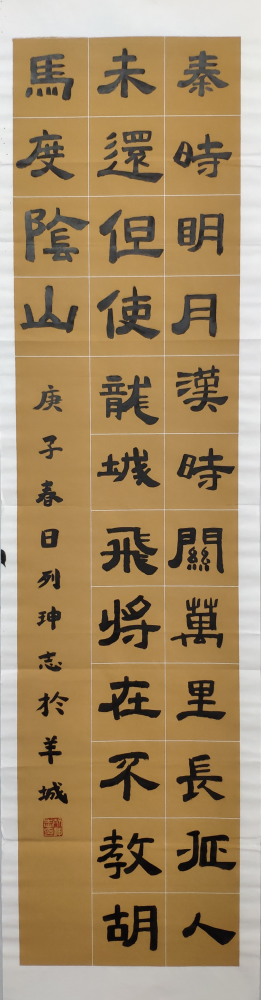 秦時明月漢時關萬里長征人
未還但使龍城飛將在不教胡
馬度陰山
庚子春日列珅志於羊城